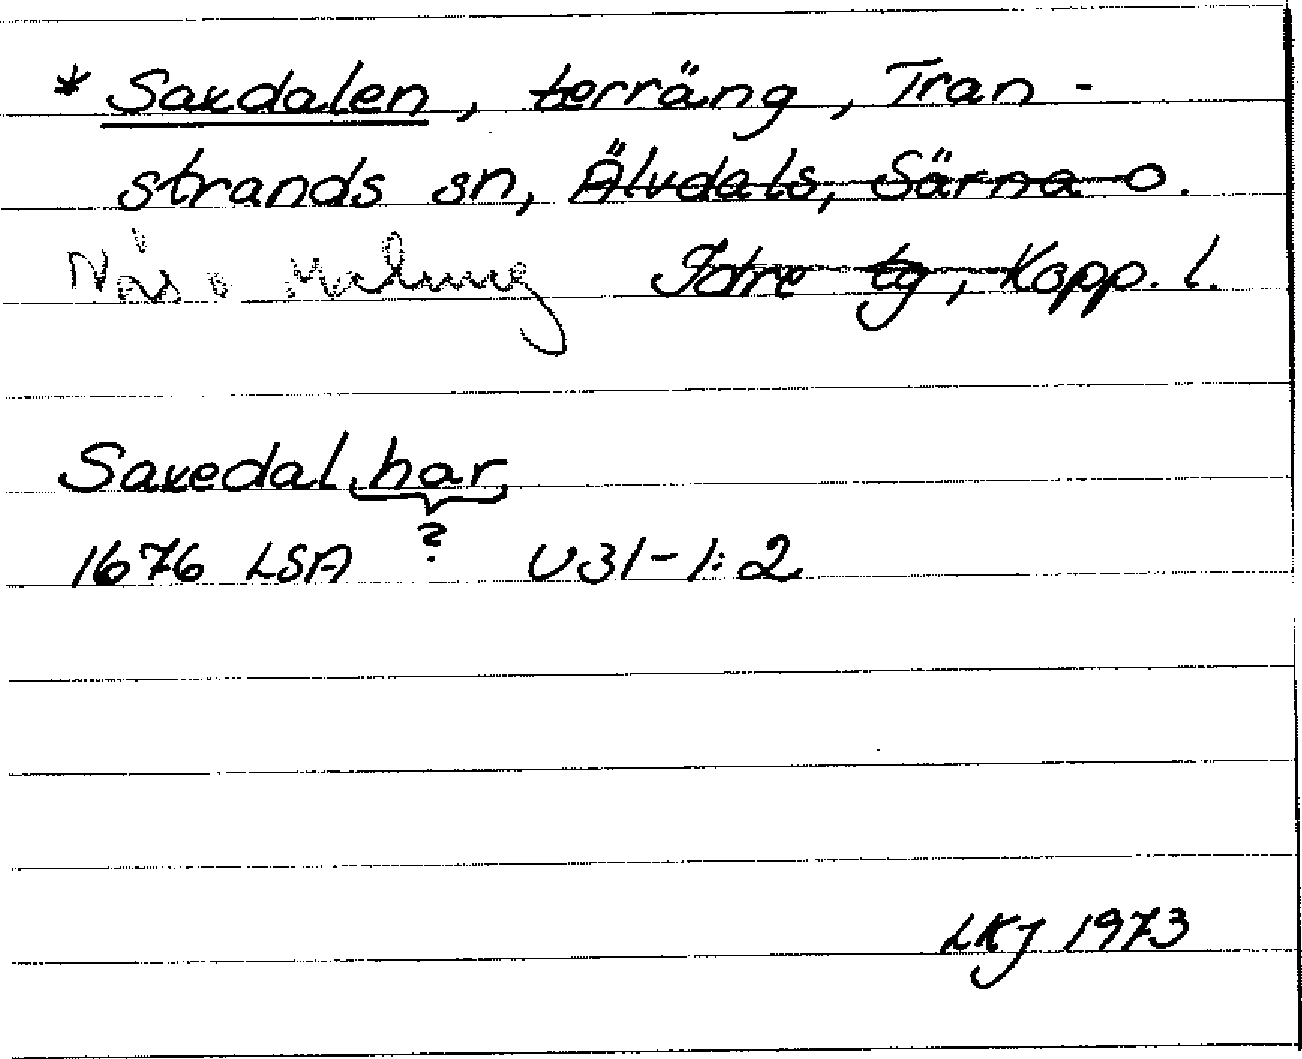 * Saxdalen, terräng, Tran-
strands sn, Älvdals, Särna o.
Nås o Malung Idre tg, Kopp. l.
Saxedal har
?
1676 LSA U31-1:2
LKJ 1973